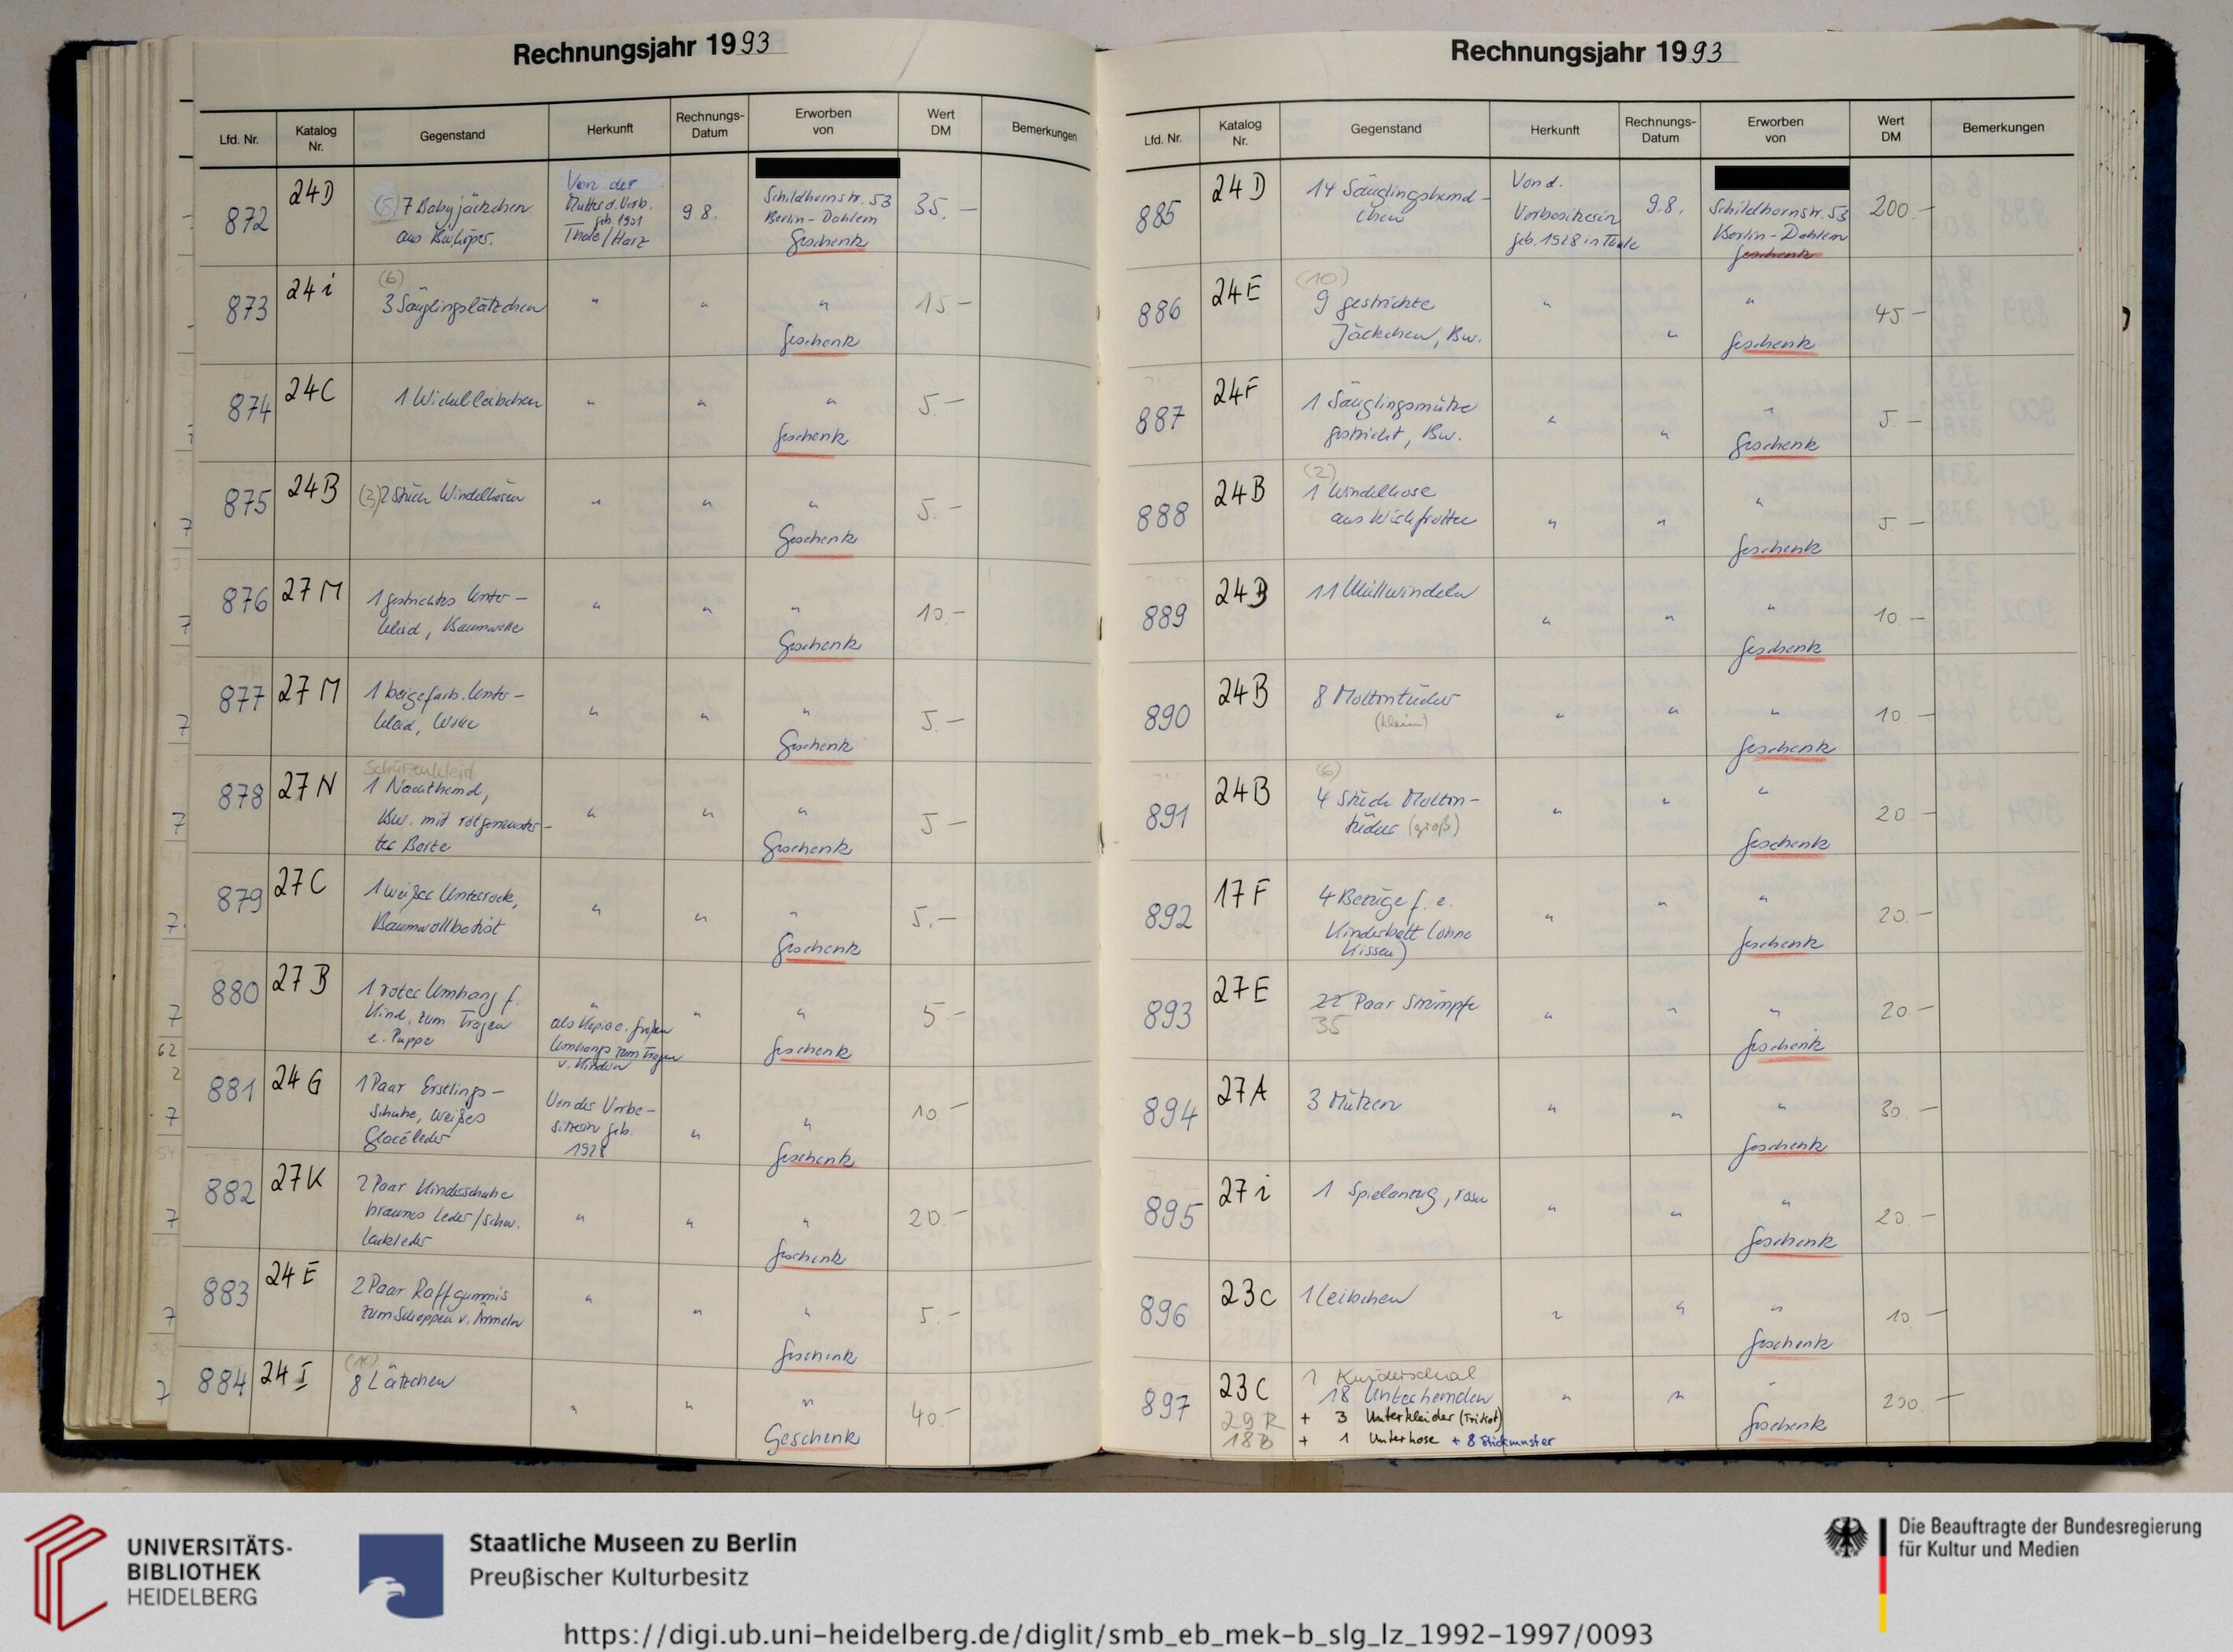 Rechnungsjahr 1993
Lfd. Nr.
Katalog Nr.
Gegenstand
Herkunft
Rechnungs-Datum
Erworben von
Wert DM
Bemerkungen
872
24D
7 Babyjäckchen
aus Bw.köper.
Von der
Mutter d. Vorb.
geb. 1901
Thale/Harz
9.8.
Schildhornstr. 53
Berlin-Dahlem
Geschenk
35.-
873
24i
(6)
3 Säuglingslätzchen
"
"
"
Geschenk
15-
874
24C
1 Wickelleibchen
"
"
"
Geschenk
5.-
875
24B
(3) 2 Stück Windelhosen
"
"
"
Geschenk
5.-
876
27M
1 gestricktes Unter-
kleid, Baumwolle
"
"
"
Geschenk
10.-
877
27M
1 beigefarb. Unter-
kleid, Wolle
"
"
"
Geschenk
5.-
878
27N
Schürzenkleid
1 Nachthemd,
Bw. mit rotgemuster-
ter Borte
"
"
"
Geschenk
5-
879
27C
1 weißer Unterrock,
Baumwollbatist
"
"
"
Geschenk
5.-
880
27B
1 roter Umhang f.
Kind, zum Tragen
e. Puppe
"
als Kopie e. großen
Umhangs zum Tragen
v. Kindern
"
"
Geschenk
5.-
881
24G
1 Paar Erstlings-
schuhe, weißes
Glacéleder
Von der Vorbe-
sitzerin geb.
1928
"
"
Geschenk
10.-
882
27K
2 Paar Kinderschuhe
braunes Leder/schw.
Lackleder
"
"
"
Geschenk
20.-
883
24E
2 Paar Raffgummis
zum Schoppen v. Ärmeln
"
"
"
Geschenk
5.-
884
24I
(10)
8 Lätzchen
"
"
"
Geschenk
40.-
Rechnungsjahr 1993
Lfd. Nr.
Katalog Nr.
Gegenstand
Herkunft
Rechnungs-Datum
Erworben von
Wert DM
Bemerkungen
885
24D
14 Säuglingshemd-
chen
Von d.
Vorbesitzerin
geb. 1928 in Thale
9.8.
Schildhornstr. 53
Berlin-Dahlem
Geschenk
200.-
886
24E
(10)
9 gestrickte
Jäckchen, Bw.
"
"
"
Geschenk
45-
887
24F
1 Säuglingsmütze
gestrickt, Bw.
"
"
"
Geschenk
5.-
888
24B
(2)
1 Windelhose
aus Wickfrottee
"
"
"
Geschenk
5-
889
24B
11 Mullwindeln
"
"
"
Geschenk
10.-
890
24B
8 Moltontücher
(klein)
"
"
"
Geschenk
10-
891
24B
(6)
4 Stück Molton-
tücher (groß)
"
"
"
Geschenk
20.-
892
17F
4 Bezüge f. e.
Kinderbett (ohne
Kissen)
"
"
"
Geschenk
20.-
893
27E
22 Paar Strümpfe
35
"
"
"
Geschenk
20-
894
27A
3 Mützen
"
"
"
Geschenk
30.-
895
27i
1 Spielanzug, rosa
"
"
"
Geschenk
20.-
896
23c
1 Leibchen
"
"
"
Geschenk
10.-
897
23C
29R
18B
1 Kinderschal
18 Unterhemden
+ 3 Unterkleider (Trikot)
+ 1 Unterhose + 8 Stickmuster
"
"
"
Geschenk
200.-
UNIVERSITÄTS-
BIBLIOTHEK
HEIDELBERG
Staatliche Museen zu Berlin
Preußischer Kulturbesitz
Die Beauftragte der Bundesregierung
für Kultur und Medien
https://digi.ub.uni-heidelberg.de/diglit/smb_eb_mek-b_slg_lz_1992-1997/0093